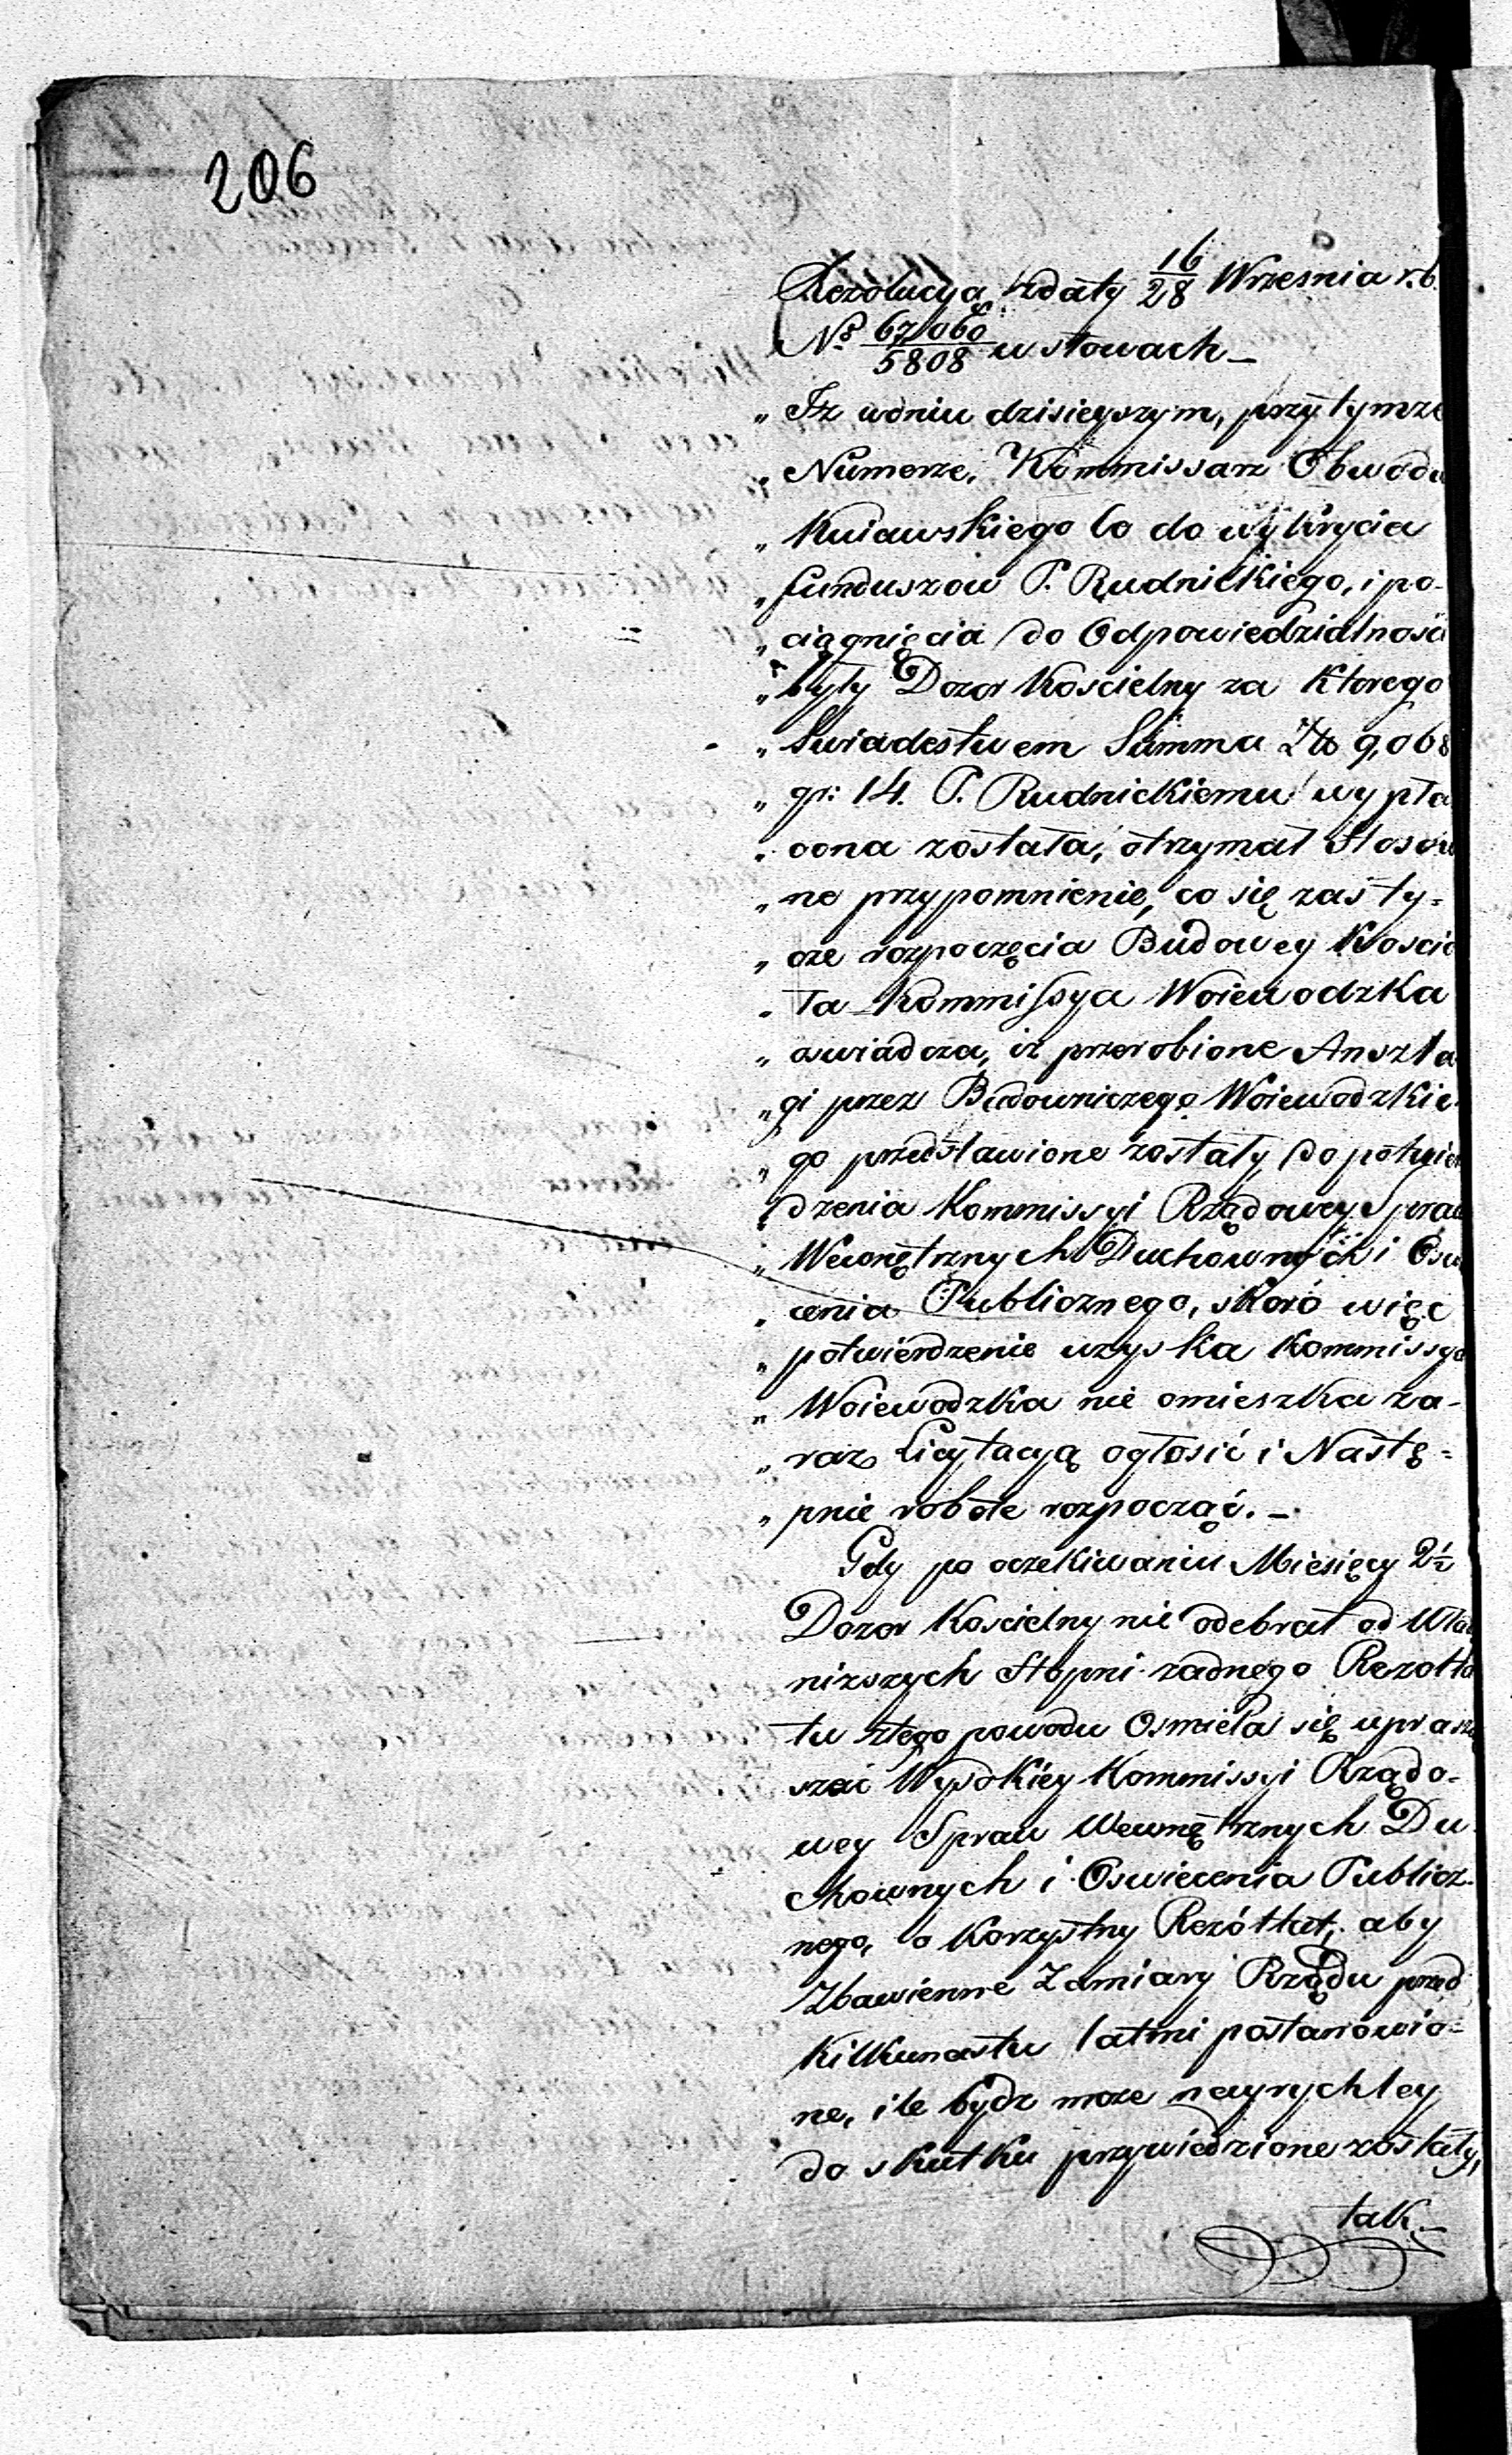 206
Rezolucya zdaty 16/28 Września r.b.
No 67060/5808 w słowach —
„ Iż wdniu dzisieyszym, przy tymże
„ Numerze, Kommissarz Obwodu
„ Kuiawskiego Co do wykrycia
„ funduszow P. Rudnickiego, i po-
„ ciągnięcia do Odpowiedzialnosci
„ były Dozor Koscielny za Ktorego
„ Swiadectwem Summa Złł 9,068
„ gr: 14. P. Rudnickiemu wypła
„ cona została, otrzymał Stosow
„ ne przypomnienie, co się zaś ty-
„ cze rozpoczęcia Budowey Koscio
„ ła Kommissya Woiewodzka
„ oswiadcza, iż przerobione Anszla
„ gi przez Budowniczego Woiewodzkie-
„ go przedstawione zostały do potwier
„ dzenia Kommissyi Rządowey Spraw
„ Wewnętrznych Duchownych i Oswie
„ cenia Publicznego, skoro więc
„ potwierdzenie uzyska Kommissya
„ Woiewodzka nie omieszka za-
„ raz Licytacyą ogłosić i Nastę-
„ pnie robote rozpocząć. —
Gdy po oczekiwaniu Miesięcy 2½
Dozor Koscielny nie odebrał od Wład
niższych Stopni żadnego Rezolta
tu ztego powodu Osmiela się uprasza
szać Wysokiéy Kommissyi Rządo-
wey Spraw Wewnętrznych Du-
chownych i Oswiecenia Publicz-
nego, o Korzystny Rezóltat, aby
Zbawienne Zamiary Rządu przed
Kilkunastu latmi postanowio-
ne, ile bydz może nayrychley
do skutku przywiedzione zostały,
tak